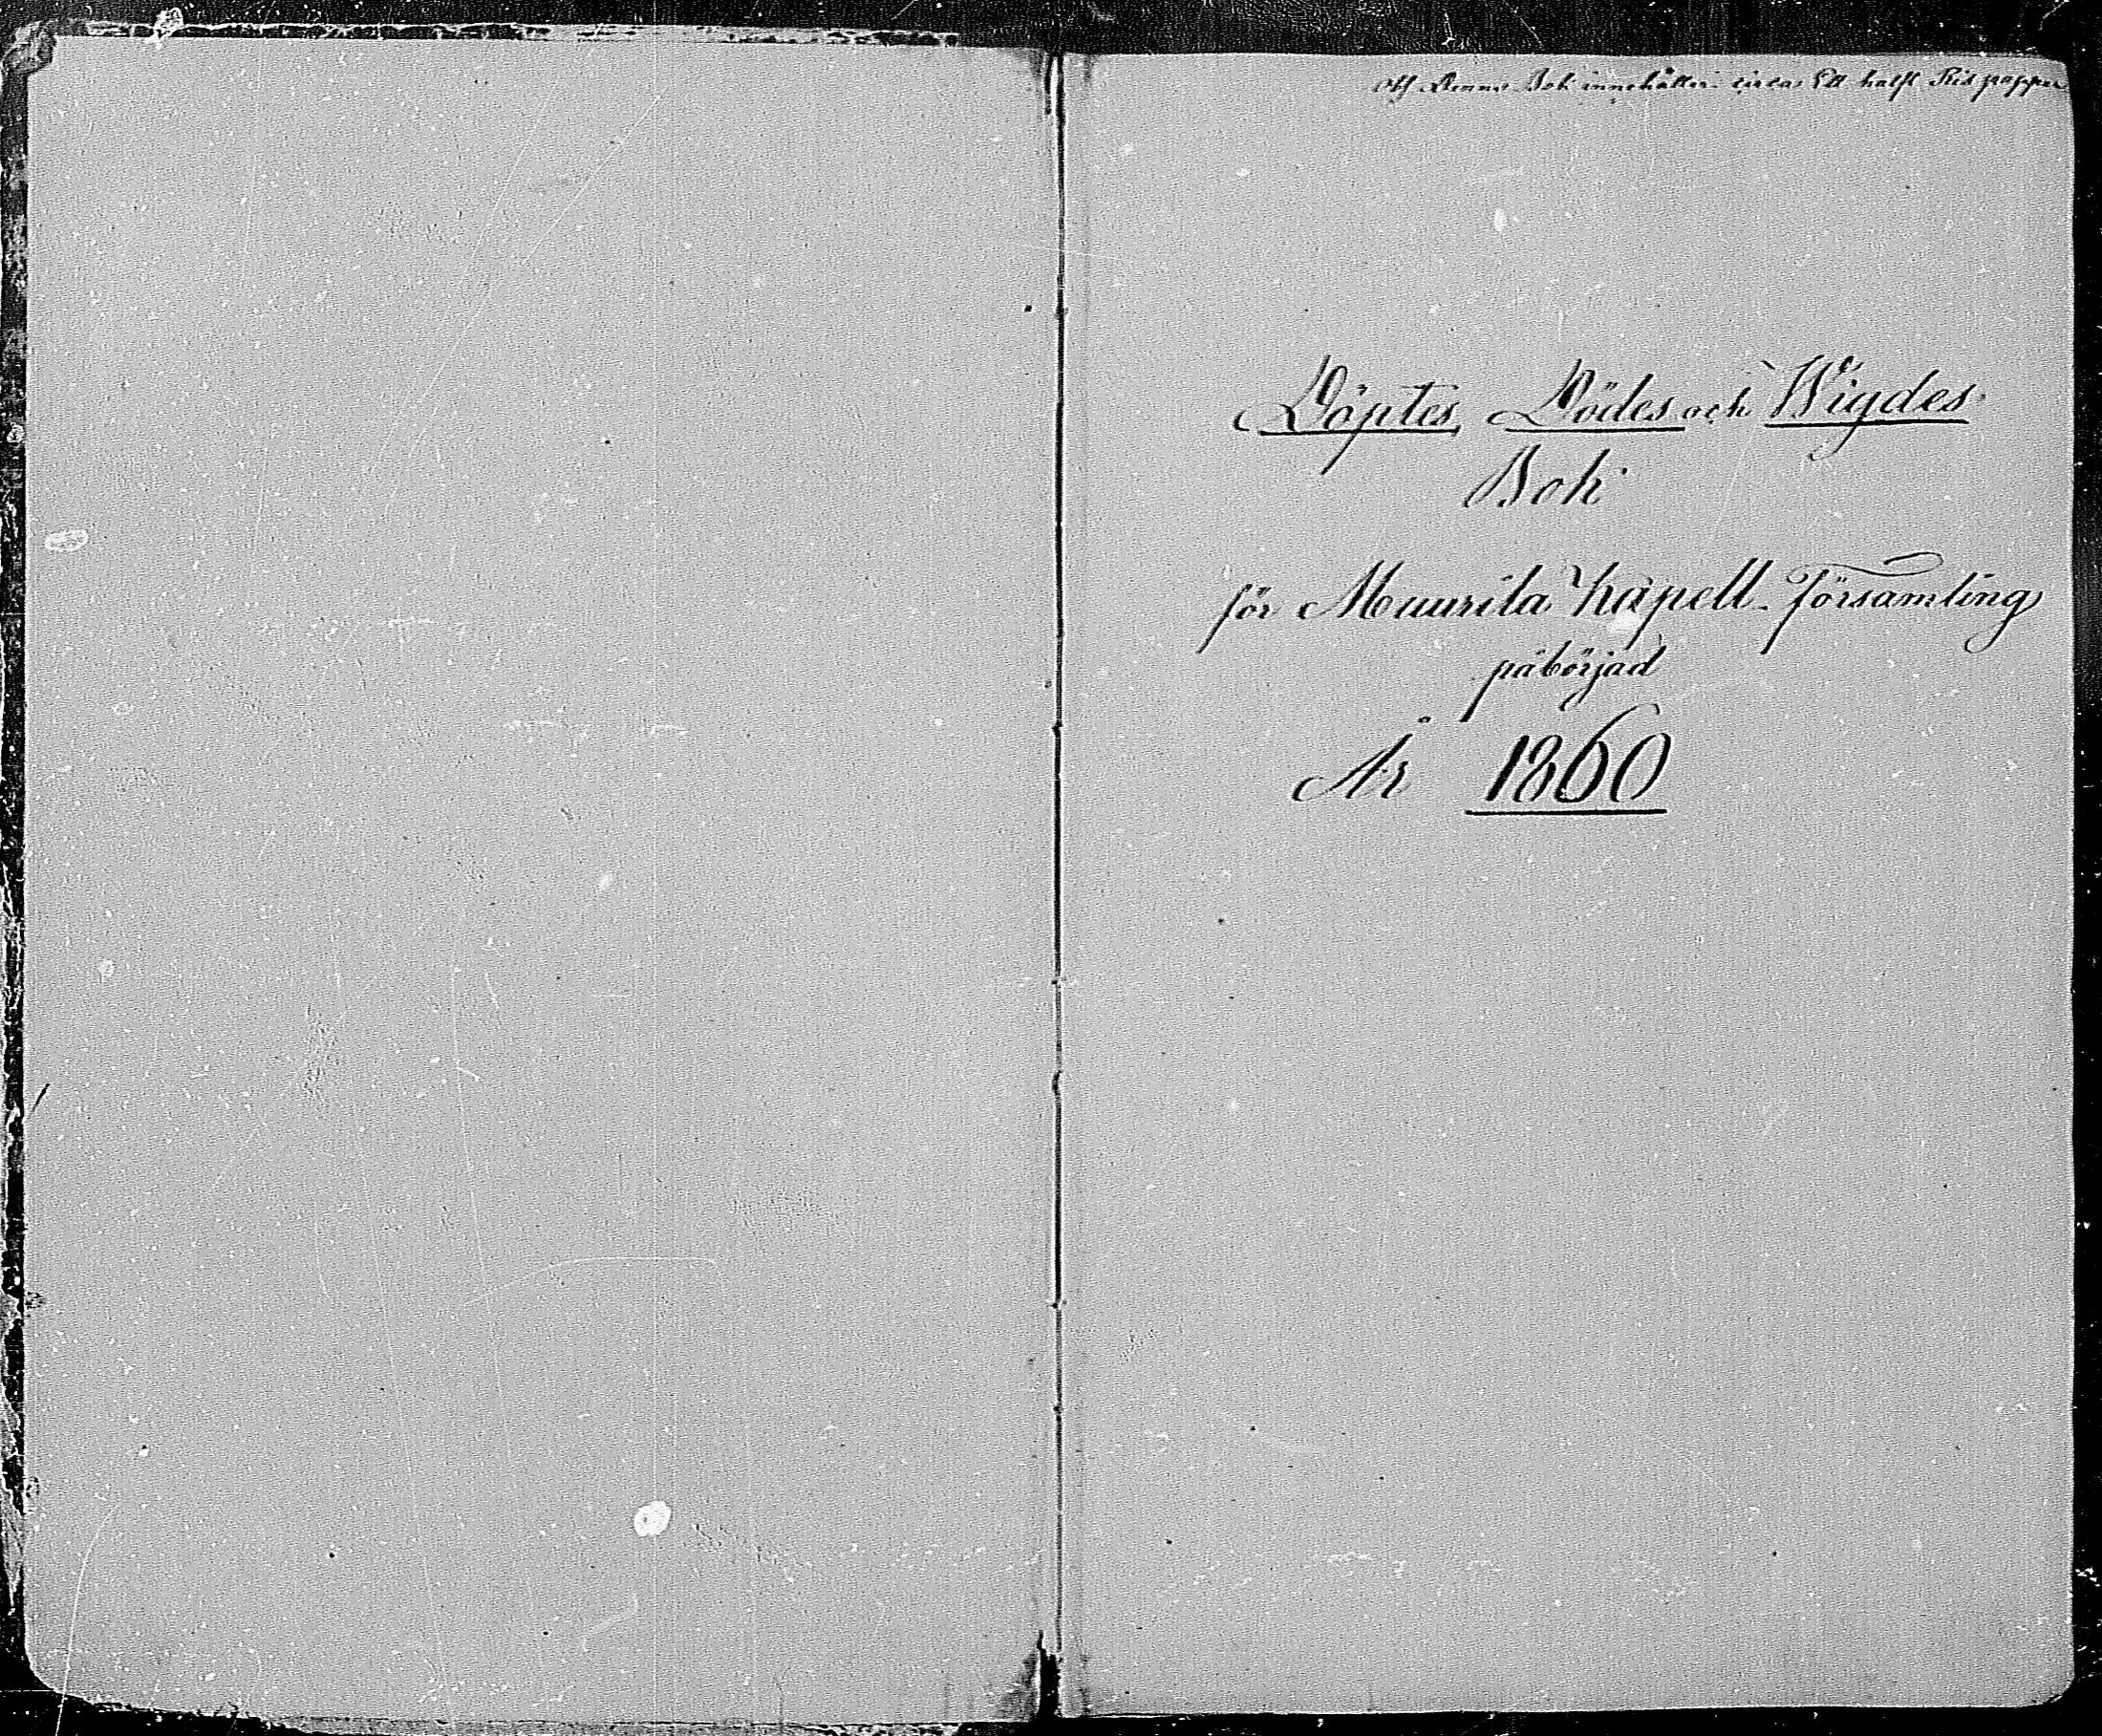 Denna Bok innehåller circa Ett halft Ris papper
Döptes, Dödes och Wigdes
Bok
för Muurila Kapell-Församling
påbörjad
År 1860